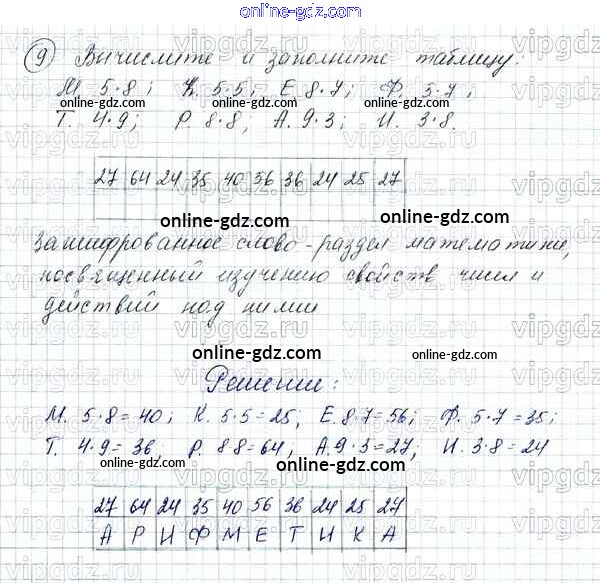 online-gdz.com
9 Вычислите и заполните таблицу:
М. 5·8; К. 5·5; Е. 8·7; Ф. 5·7;
online-gdz.com online-gdz.com online-gdz.com
Т. 4·9; Р. 8·8; А. 9·3; И. 3·8.
online-gdz.com
27 64 24 35 40 56 36 24 25 27
online-gdz.com
Зашифрованное слово - раздел математики,
посвященный изучению свойств чисел и
действий над ними
online-gdz.com online-gdz.com
Решение:
М. 5·8=40; К. 5·5=25; Е. 8·7=56; Ф. 5·7=35;
Т. 4·9=36, Р. 8 8=64, А. 9·3=27, И. 3·8=24
online-gdz.com online-gdz.com
27 64 24 35 40 56 36 24 25 27
А Р И Ф М Е Т И К А
vipgdz.ru